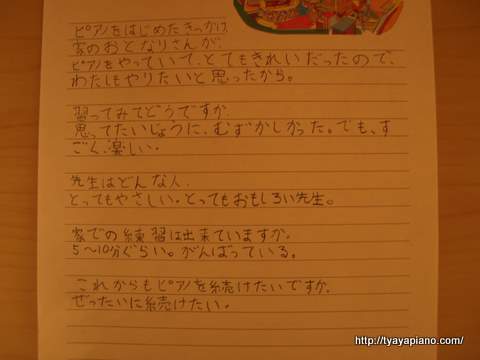 ピアノをはじめたきっかけ
家のおとなりさんが、
ピアノをやっていて、とてもきれいだったので、
わたしもやりたいと思ったから。
習ってみてどうですか
思ってたいじょうに、むずかしかった。でも、す
ごく、楽しい。
先生はどんな人
とってもやさしい。とってもおもしろい先生。
家での練習は出来ていますか。
5〜10分ぐらい。がんばっている。
これからもピアノを続けたいですか
ぜったいに続けたい。
http://tyayapiano.com/